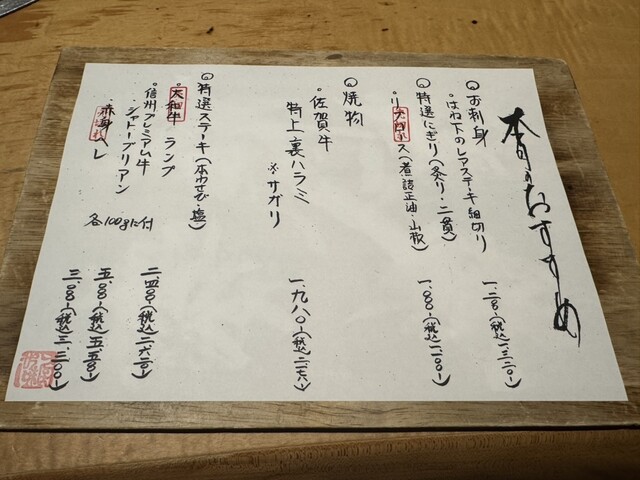 本日のおすすめ
○お刺身
・はね下のレアステーキ細切り 一.二〇〇-(税込一.三二〇-)
○特選にぎり(炙り・二貫)
・リブロース(煮詰正油・山椒) 一.〇〇〇-(税込一.一〇〇-)
○焼物
・佐賀牛
特上裏ハラミ 一.九八〇-(税込二.一七八-)
※サガリ
○特選ステーキ(本わさび・塩)
・大和牛 ランプ 二.四〇〇-(税込二.六四〇-)
・信州プレミアム牛
・シャトーブリアン 五.〇〇〇-(税込五.五〇〇-)
・赤身ヒレ 三.〇〇〇-(税込三.三〇〇-)
各100gに付